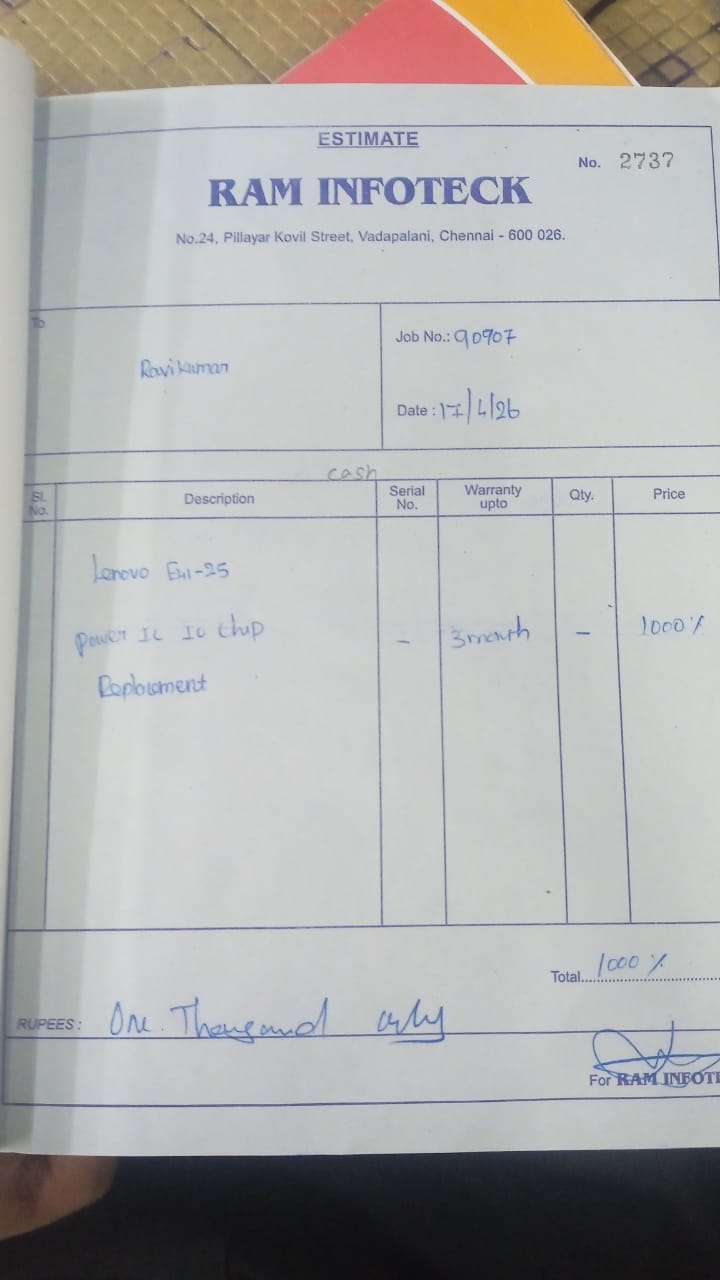 ESTIMATE
No. 2737
RAM INFOTECK
No.24, Pillayar Kovil Street, Vadapalani, Chennai - 600 026.
To
Ravikumar
Job No.: 90907
Date : 17/4/26
cash
Sl. No. Description Serial No. Warranty upto Qty. Price
Lenovo E41-25
Power IC Io Chip - 3 month - 1000 %
Replacment
Total 1000 %
RUPEES : One Thousand only
For RAM INFOTE